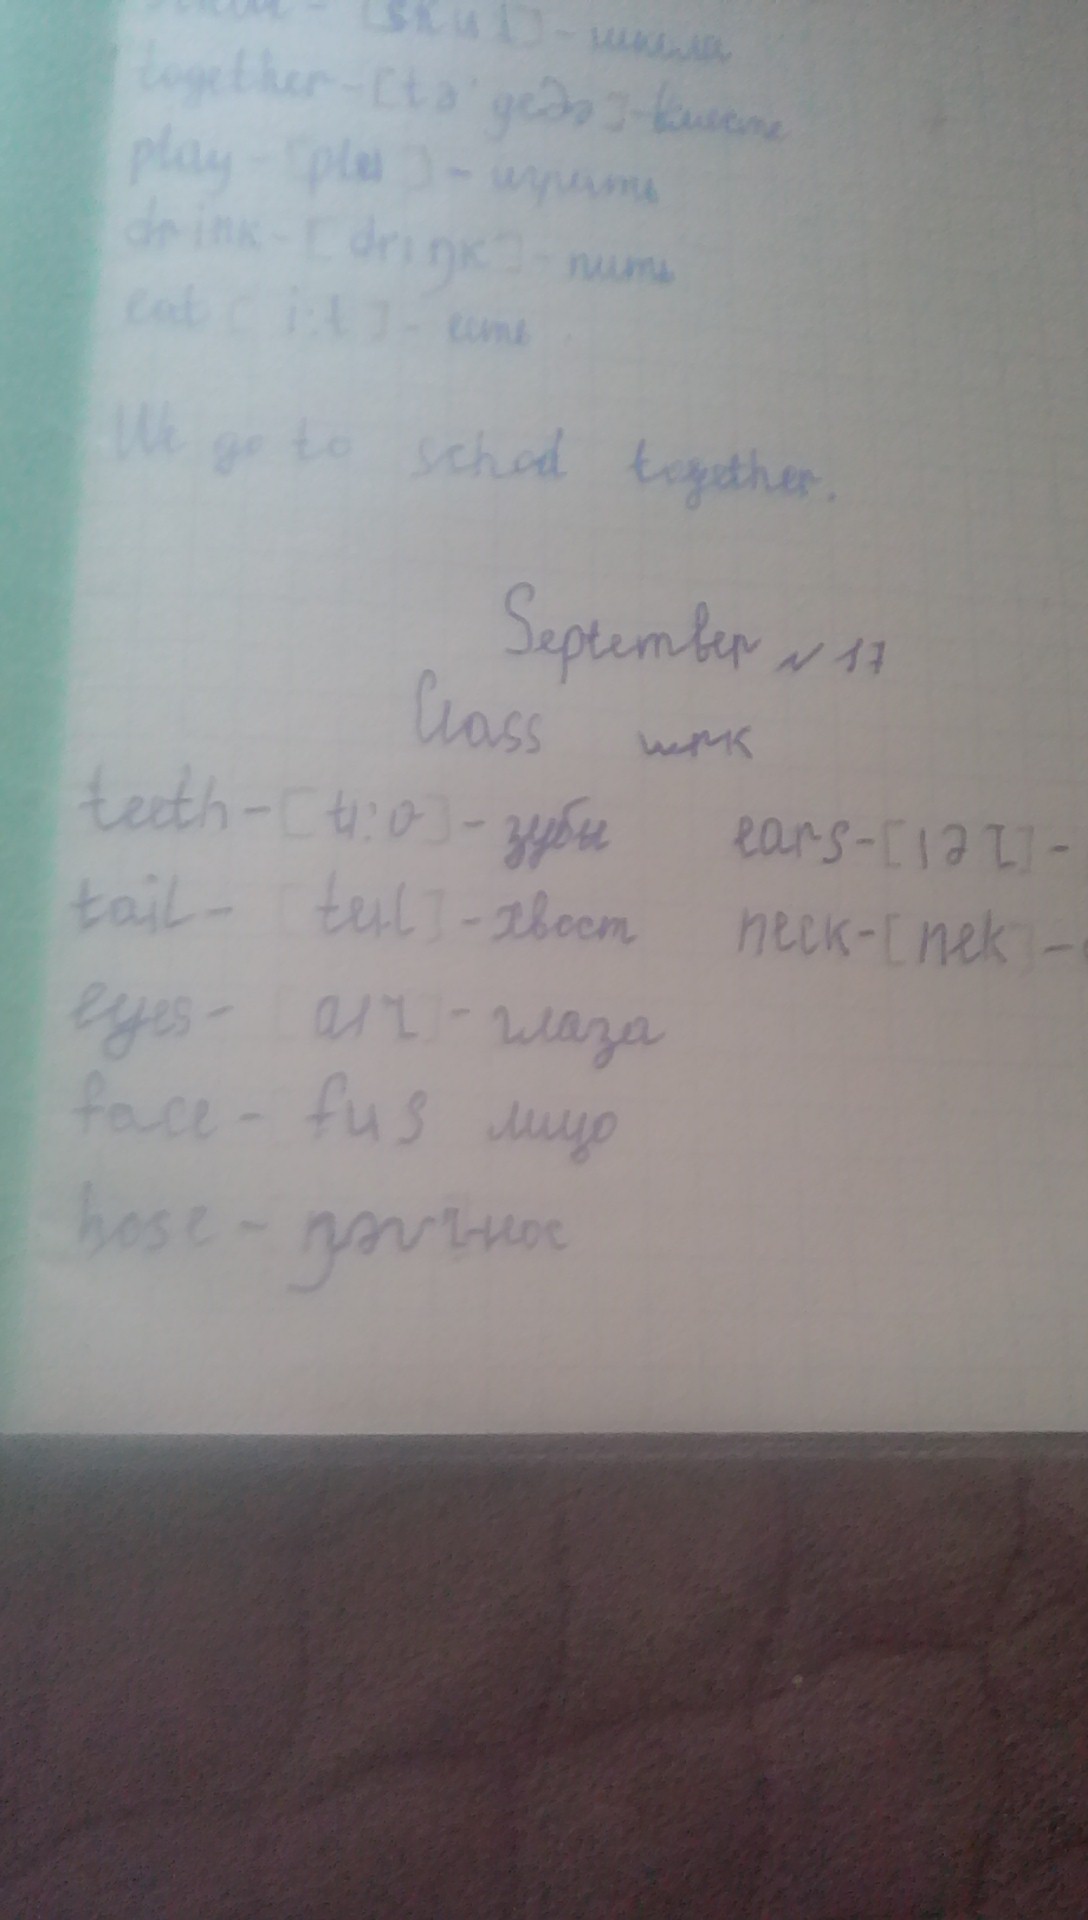 school - [sku l] - школа
together - [tə'geðə] - вместе
play - [pleɪ] - играть
drink - [drɪŋk] - пить
eat [i:t] - есть
We go to school together.
September № 17
Class work
teeth - [ti:θ] - зубы ears - [ɪəz] -
tail - [teıl] - хвост neck - [nek] -
eyes - [aız] - глаза
face - feıs лицо
nose - nəʊz - нос